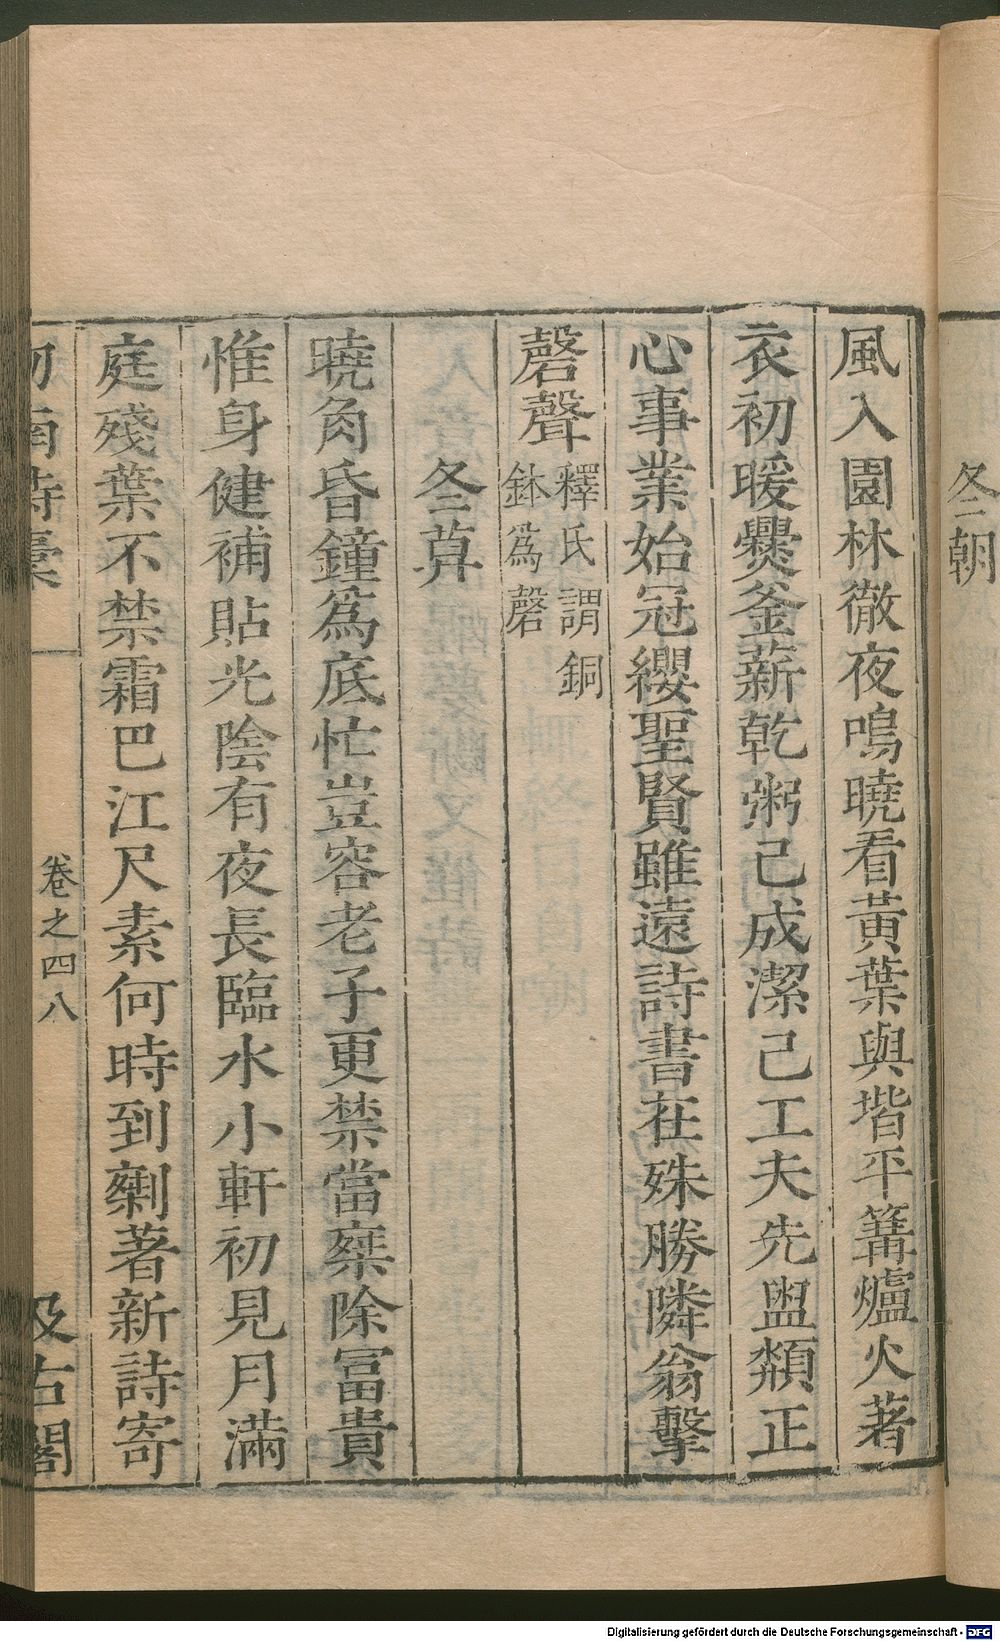 冬朝
風入園林徹夜鳴曉看黃葉與堦平篝爐火著
衣初暖爨釜薪乾粥已成潔己工夫先盥頮正
心事業始冠纓聖賢雖遠詩書在殊勝隣翁擊
磬聲釋氏謂銅
鉢爲磬
冬暮
曉角昏鐘爲底忙豈容老子更禁當棊除冨貴
惟身健補貼光陰有夜長臨水小軒初見月滿
庭殘葉不禁霜巴江尺素何時到剩著新詩寄
卷之四八
及古閣
Digitalisierung gefördert durch die Deutsche Forschungsgemeinschaft - DFG